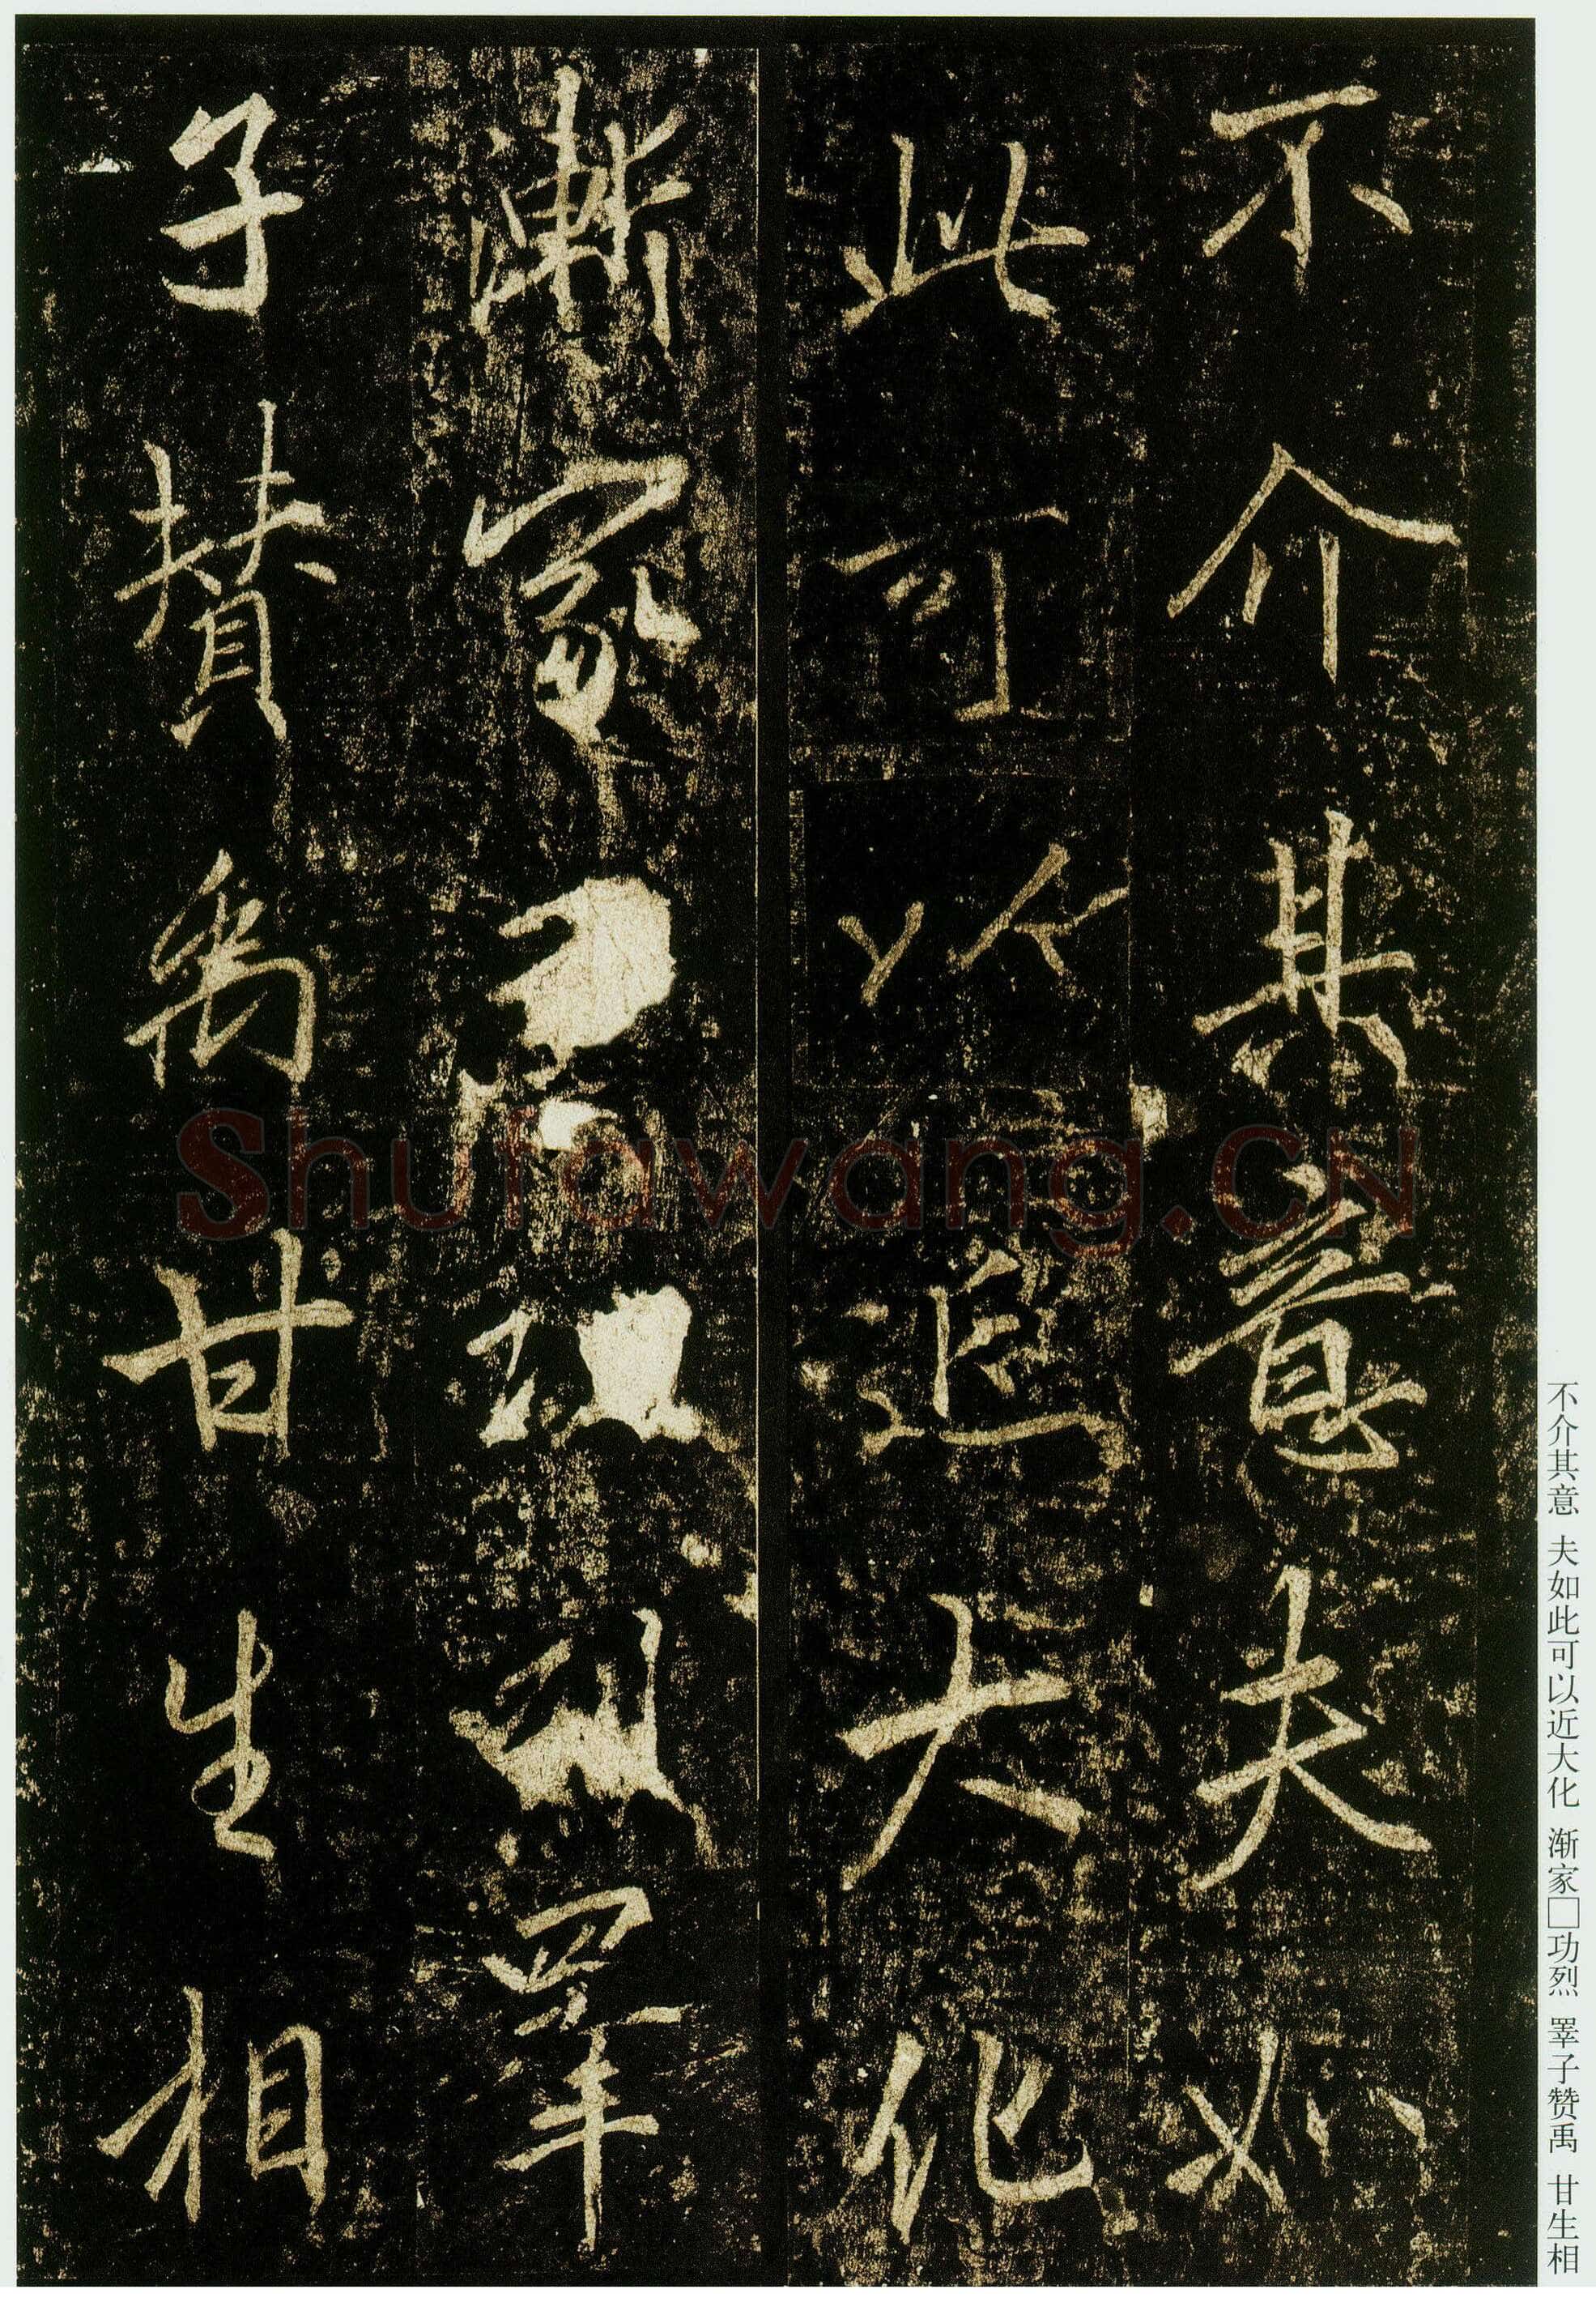 不介其意夫如
此可以追大化
漸家功烈睪
子賛禹甘生相
不介其意 夫如此可以近大化 渐家□功烈 睪子赞禹 甘生相
Shufawang.CN